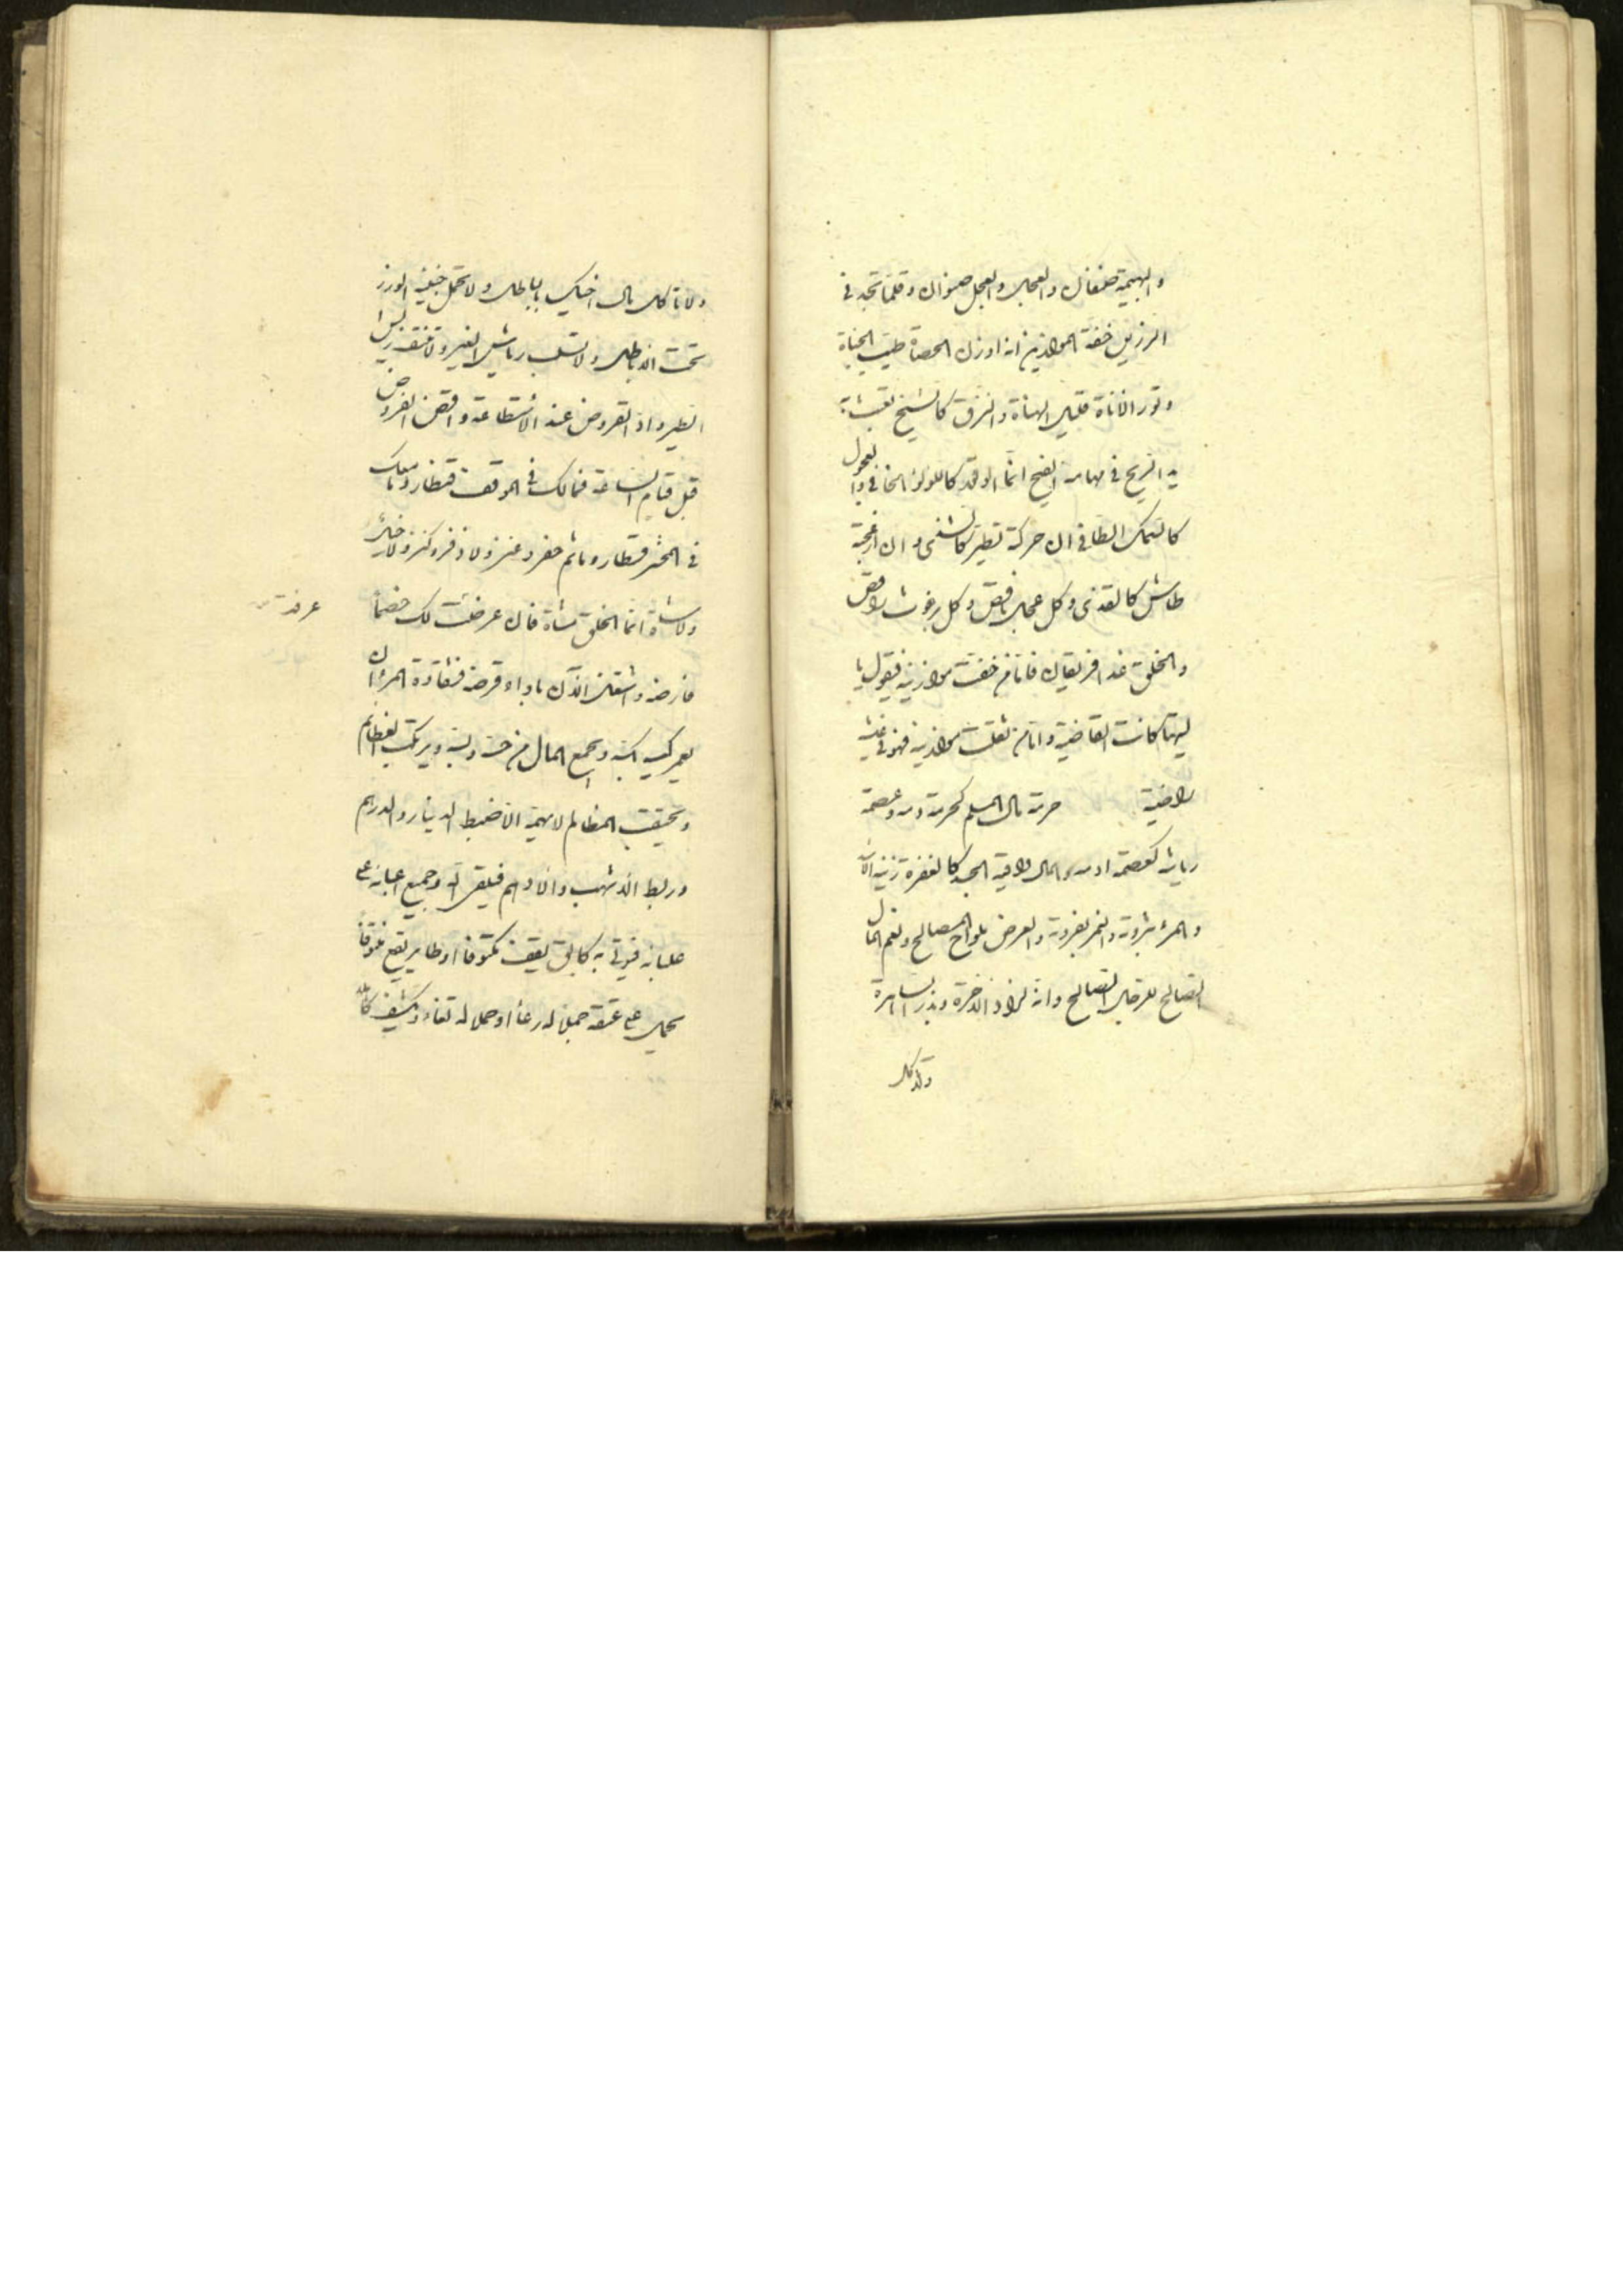 والبهيمة صنفان والعجل والعجل صنوان وقلما تجد في
الرزين خفة الموازين انه اوزن الحصاة طيب الجناة
وقور الاناة قليل الهناة والنزق كالشيخ تعبث
به الريح في مهامه الفيح انما الوقور كاللؤلؤ الخافي والعجول
كالسمك الطافي ان حركته تطير كالشفى وان ازعجته
طاش كالقذى وكل عجل ناقص وكل برغوث راقص
والخلق غدا فريقان فاما من خفت موازينه فيقول يا
ليتها كانت القاضية واما من ثقلت موازينه فهو في عيشة
راضية حرمة مال المسلم كحرمة دمه وعصمة
رياشه كعصمة ادمه والمال واقية الجسد كالغفرة زينة
والمرء بثروته والنمر بفروته والعرض بلواح المصالح ونعم المال
الصالح للرجل الصالح وانه لزاد الآخرة وبذر الساهرة
ولا تأكل
ولا تأكل مال اخيك بالباطل ولا تحمل خبيئة الوزر
تحت الاباطل ولا تسلب رياش الغير ولا تنتف ريش
الطير واد القروض عند الاستطاعة واقض الفروض
قبل قيام الساعة فمالك في الموقف قنطار وما معك
في المحشر قنطار وما ثم حفر وعنز ولا وفر وكنز ولا
ولا شاة انما الخلق مشاة فان عرضت لك خصما
فارضه واشغلن الآن باداء قرضه فشقاوة المرء ان
يعمر كيسا كيسه ويجمع المال من حسه وبسه ويرتكب العظائم
ويحتقب المظالم لا يهمه الا ضبط الدينار والدرهم
وربط الاشهب والادهم فيلقى الله وجميع اعبائه على
علبائه فيؤتى به كابق يقف مكتوفا او طاير يقع منتوفا
يحمل على عنقه جملا له رغاء او حملا له ثغاء
عرضت